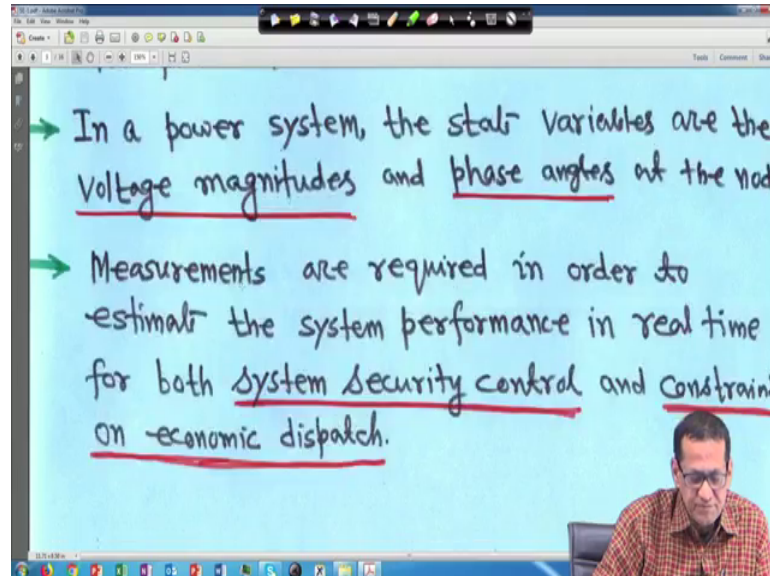 SE-1.pdf - Adobe Acrobat Pro
File Edit View Window Help
Create
1 150%
Tools Comment
In a power system, the state variables are the
voltage magnitudes and phase angles at the nod
Measurements are required in order to
estimate the system performance in real time
for both system security control and constrain
on economic dispatch.